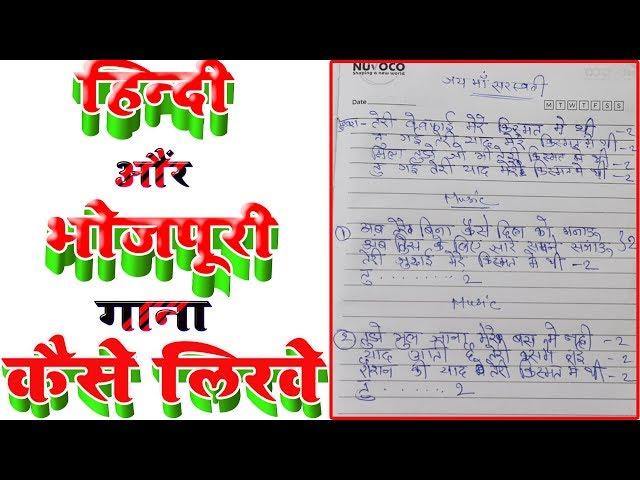 हिन्दी
और
भोजपूरी
गाना
कैसे लिखे
NUVOCO
Shaping a new world
जय माँ सरस्वती
Date
M T W T F S S
तेरी बेवफाई मेरे किस्मत मे थी -2
गई तेरी याद मेरे किस्मत मे थी -2
मिला तुझे जो वो तेरी किस्मत मे थी -2
तु गई तेरी याद मेरे किस्मत मे थी -2
Music
① अब तेरे बिना कैसे दिल को मनाऊ }2
अब किस के लिए सारे सपने सजाऊ
तेरी जुदाई मेरे किस्मत मे थी -2
तु ......... 2
Music
② तुझे भुल जाना मेरे बस मे नही -2
याद आती है तेरी -2
की याद तेरी किस्मत मे थी -2
तु ........ 2